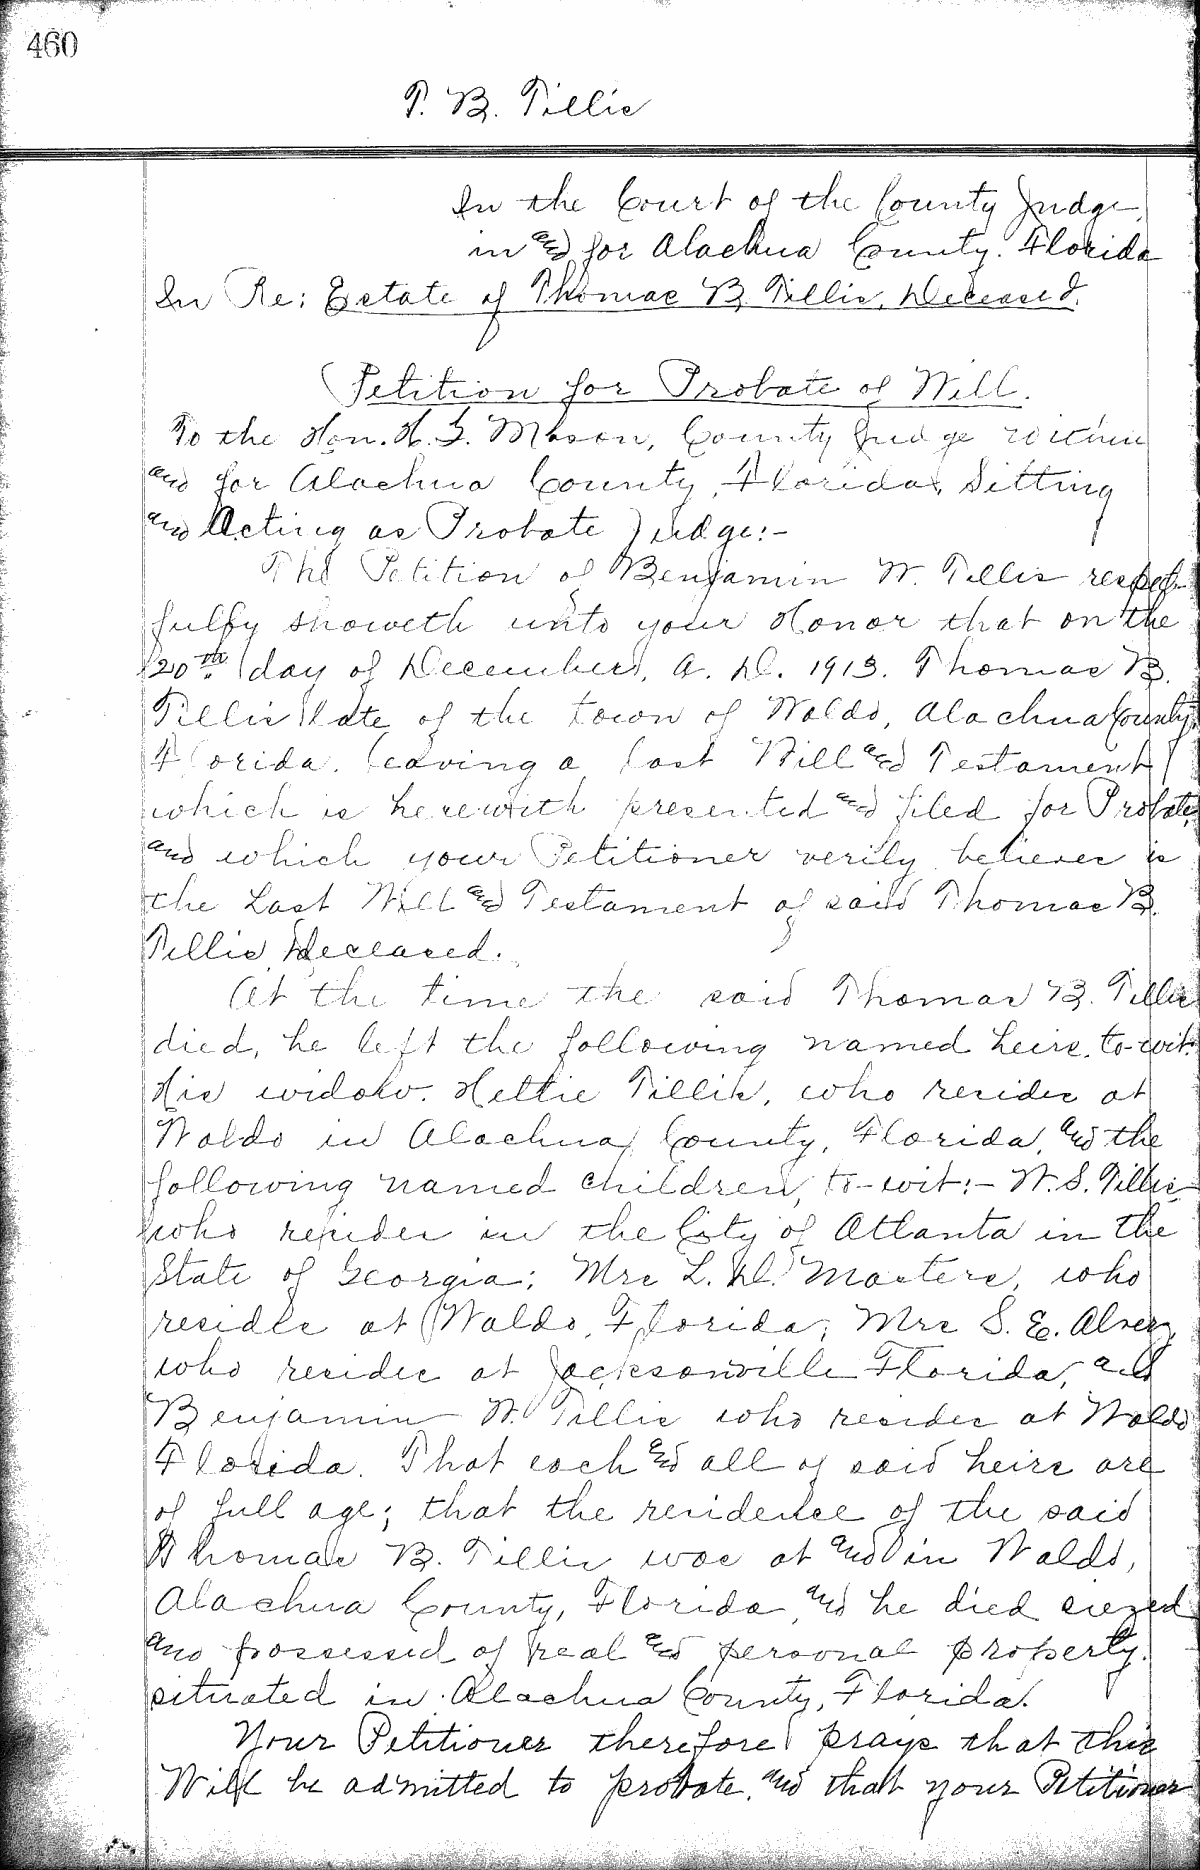 460
T. B. Tillis
In the Court of the County Judge,
in and for Alachua County. Florida
In Re: Estate of Thomas B. Tillis, Deceased.
Petition for Probate of Will.
To the Hon. H. G. Mason, County Judge within
and for Alachua County, Florida, Sitting
and Acting as Probate Judge:-
The Petition of Benjamin W. Tillis respect-
fully showeth unto your Honor that on the
20th day of December, A. D. 1913. Thomas B.
Tillis late of the town of Waldo, Alachua County,
Florida. leaving a last Will and Testament
which is herewith presented and filed for Probate,
and which your Petitioner verily believes is
the Last Will and Testament of said Thomas B.
Tillis, Deceased.
At the time the said Thomas B. Tillis
died, he left the following named heirs, to-wit:
His widow. Hettie Tillis, who resides at
Waldo in Alachua County, Florida, and the
following named children, to-wit:- W. S. Tillis
who resides in the City of Atlanta in the
State of Georgia; Mrs L. D. Masters, who
reside at Waldo, Florida; Mrs S. E. Alvery,
who resides at Jacksonville Florida, and
Benjamin W. Tillis who resides at Waldo
Florida. That each and all of said heirs are
of full age; that the residence of the said
Thomas B. Tillis was at and in Waldo,
Alachua County, Florida, and he died siezed
and possessed of real and personal property.
situated in Alachua County, Florida.
Your Petitioner therefore prays that this
Will be admitted to probate, and that your Petitioner